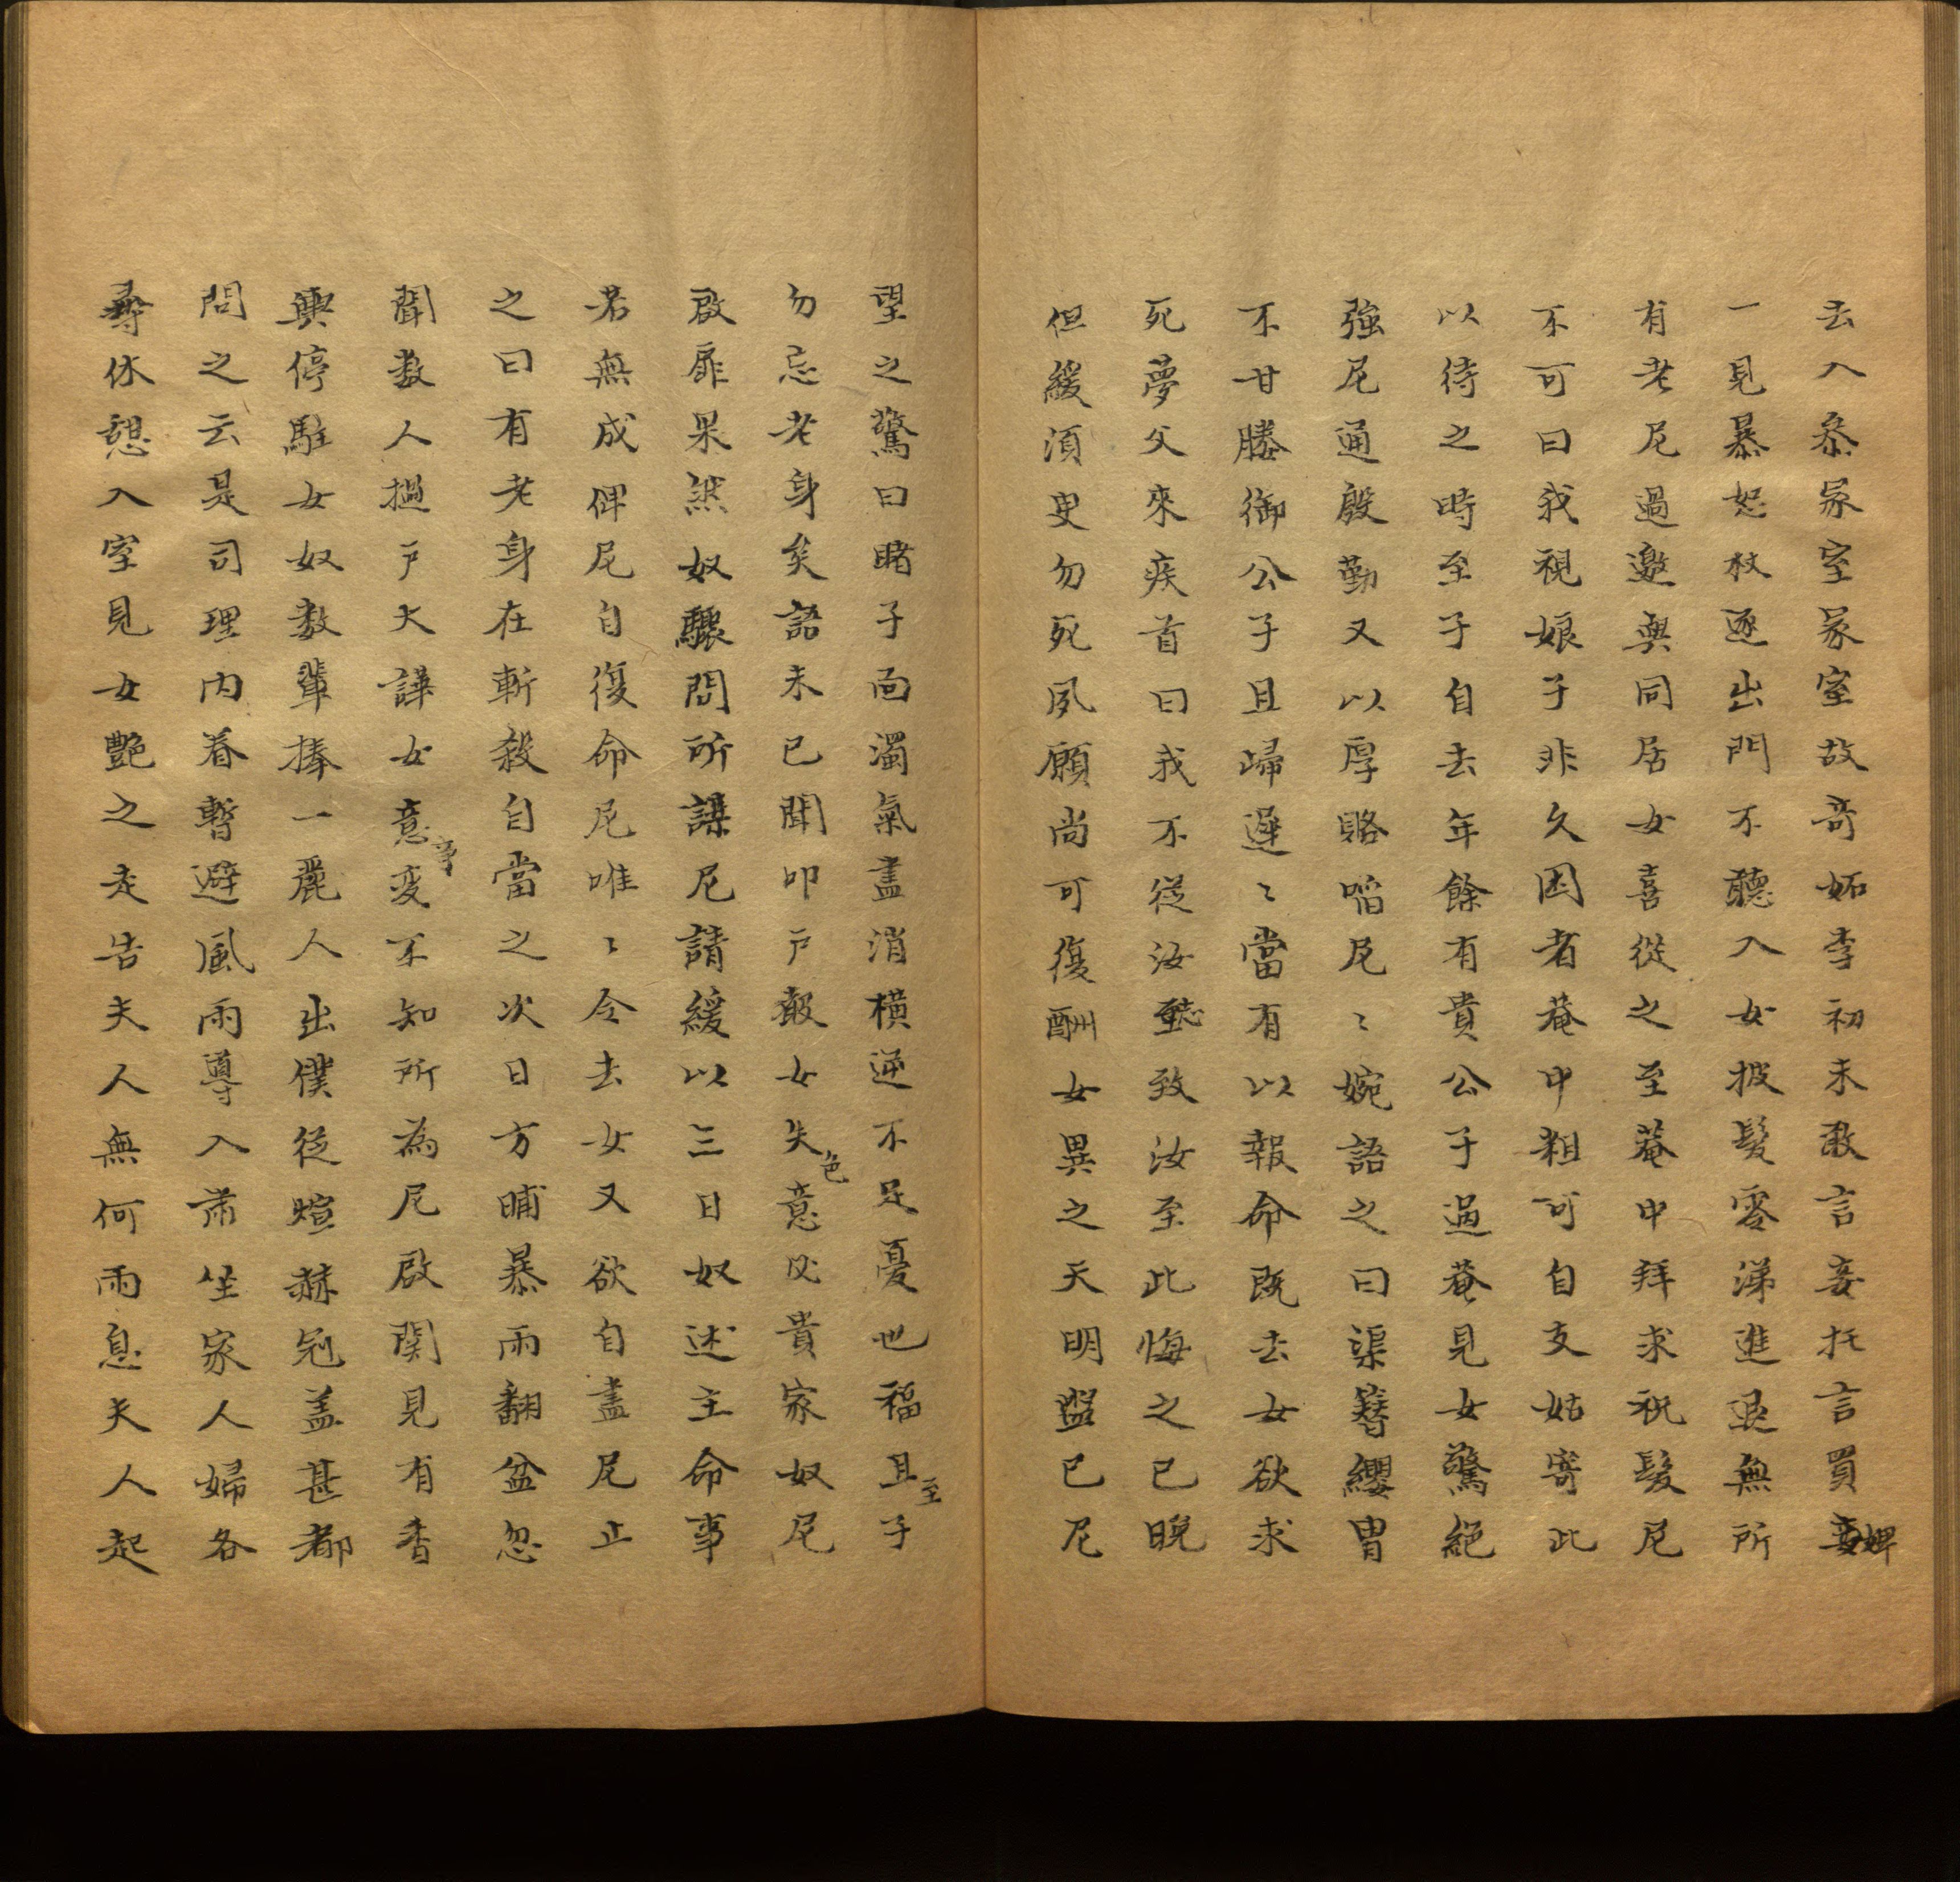 去入叅冡室冡室故奇妬李初未敢言妾托言買妾婢
一見暴怒杖逐出門不聽入女披髮零涕進退無所
有老尼過邀與同居女喜從之至菴中拜求祝髮尼
不可曰我視娘子非久困者菴中粗可自支姑寄此
以待之時至子自去年餘有貴公子過菴見女驚絕
強尼通殷勤又以厚賂啗尼〻婉語之曰渠簪纓冑
不甘媵御公子且歸遲〻當有以報命既去女欲求
死夢父來疾首曰我不從汝志致汝至此悔之已晚
但緩須臾勿死夙願尚可復酬女異之天明盥已尼
望之驚曰睹子面濁氣盡消橫逆不足憂也福且至子
勿忘老身矣語未已聞叩戶聲女失色意必貴家奴尼
啟扉果然奴驟問所謀尼請緩以三日奴述主命事
若無成俾尼自復命尼唯〻令去女又欲自盡尼止
之曰有老身在斬殺自當之次日方晡暴雨翻盆忽
聞數人撾戶大譁女意事変不知所為尼啟関見有香
輿停駐女奴數輩捧一麗人出僕從煊赫冠盖甚都
問之云是司理內眷暫避風雨導入肅坐家人婦各
尋休憩入室見女艷之走告夫人無何雨息夫人起